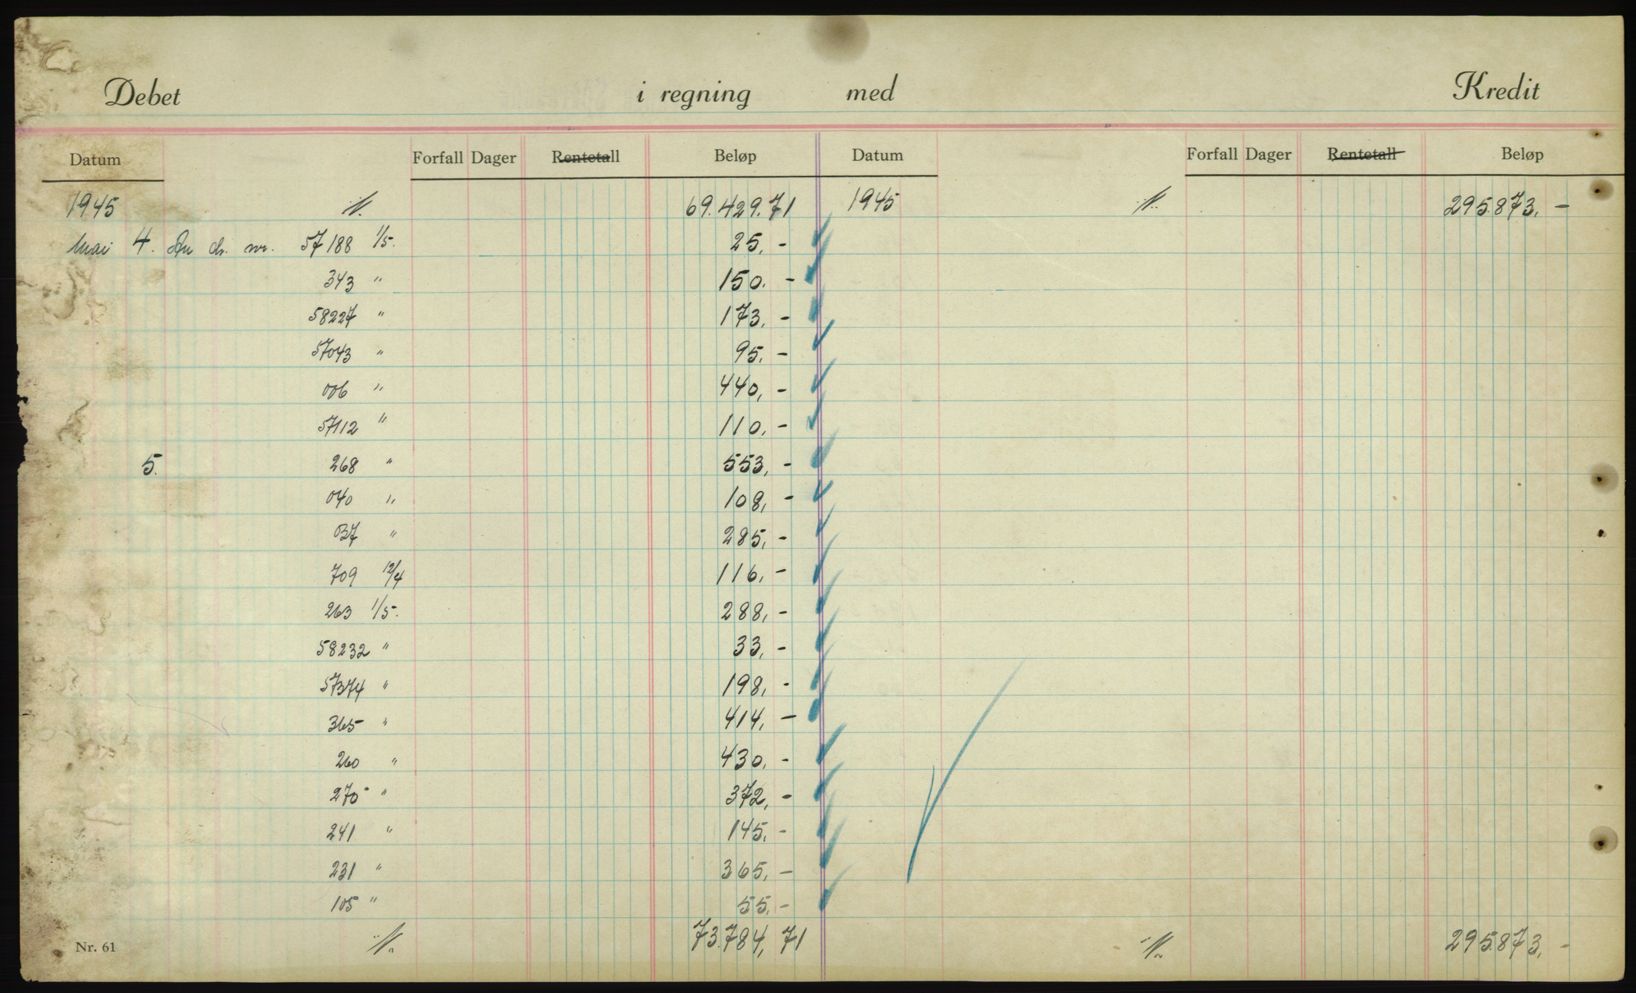 Debet i regning med Kredit
Datum Forfall Dager Rentetall Beløp Datum Forfall Dager Rentetall Beløp
1945 69.429.71 1945 295.873,-
Mai 4. dr. nr. 57188 1/5. 25,-
343 " 150,-
58227 " 173,-
57043 " 95,-
006 " 440,-
57112 " 110,-
5. 268 " 553,-
040 " 108,-
037 " 285,-
709 12/4 116,-
263 1/5. 288,-
58232 " 33,-
57374 " 198,-
365 " 414,-
260 " 430,-
270 " 372,-
241 " 145,-
231 " 365,-
105 " 55,-
Nr. 61 73.784,71 295.873,-